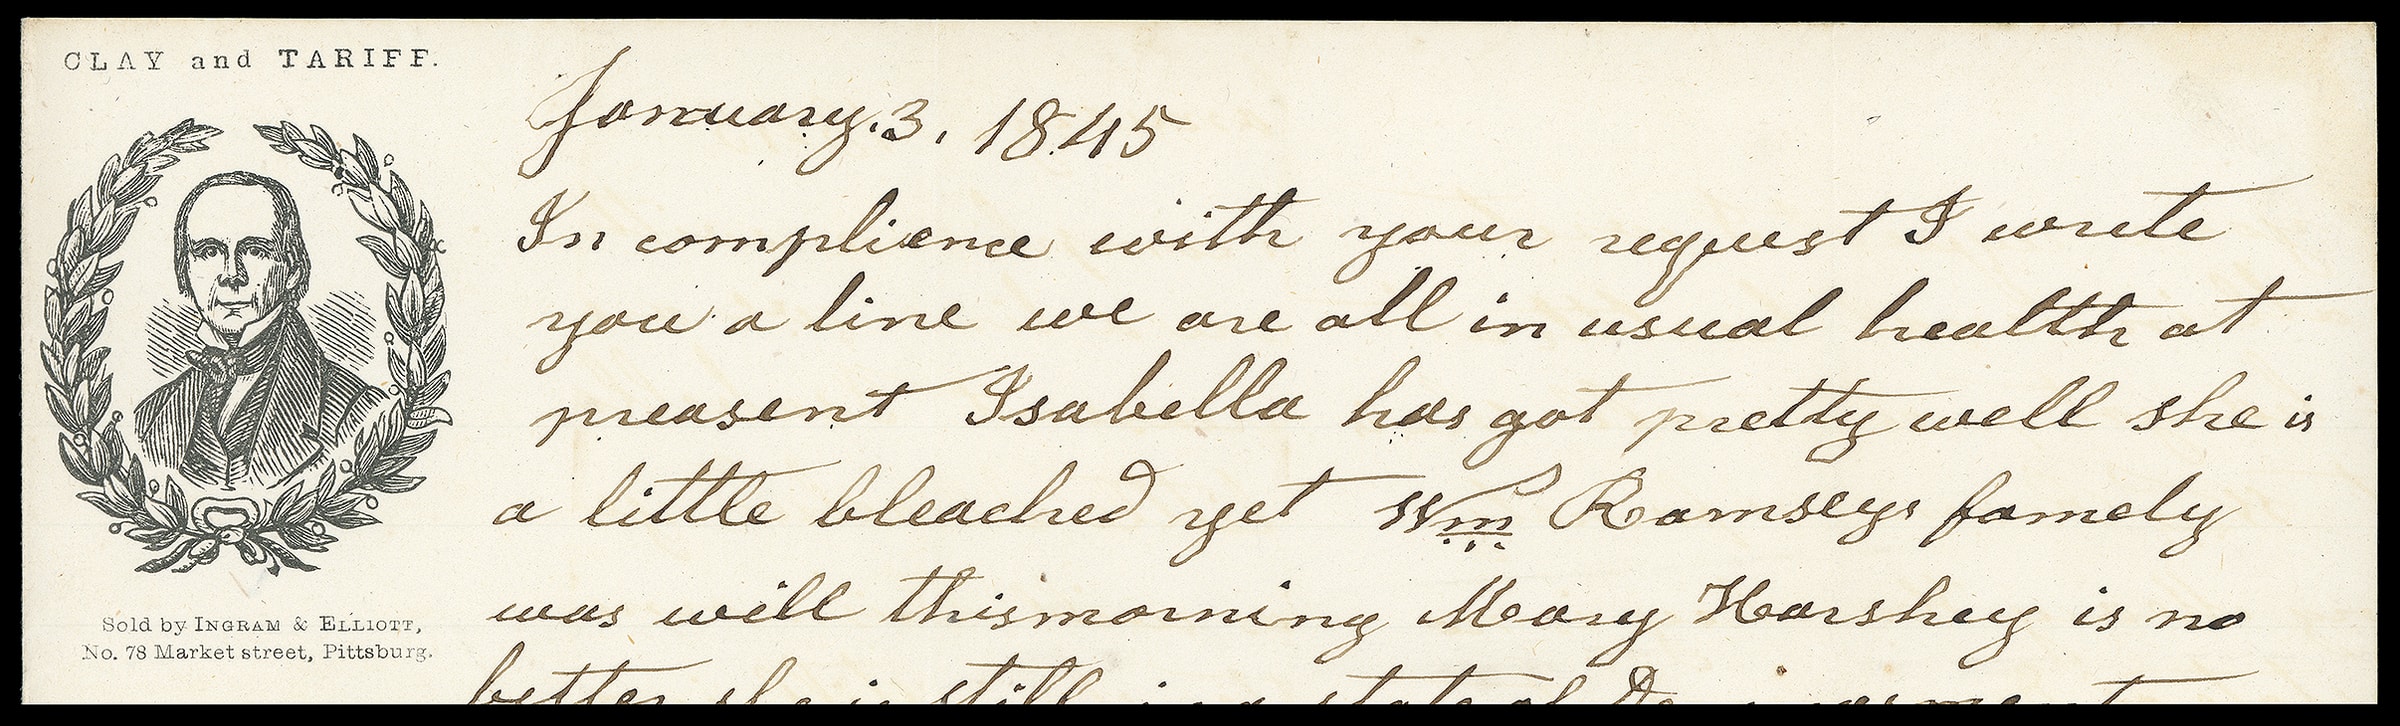 CLAY and TARIFF.
January. 3. 1845
In complience with your request I write
you a line we are all in usual health at
preasent Isabella has got pretty well she is
a little bleached yet Wm Ramseys famely
was well this morning Mary Harshey is no
better she is still in a state of
Sold by INGRAM & ELLIOTT,
No. 78 Market street, Pittsburg.